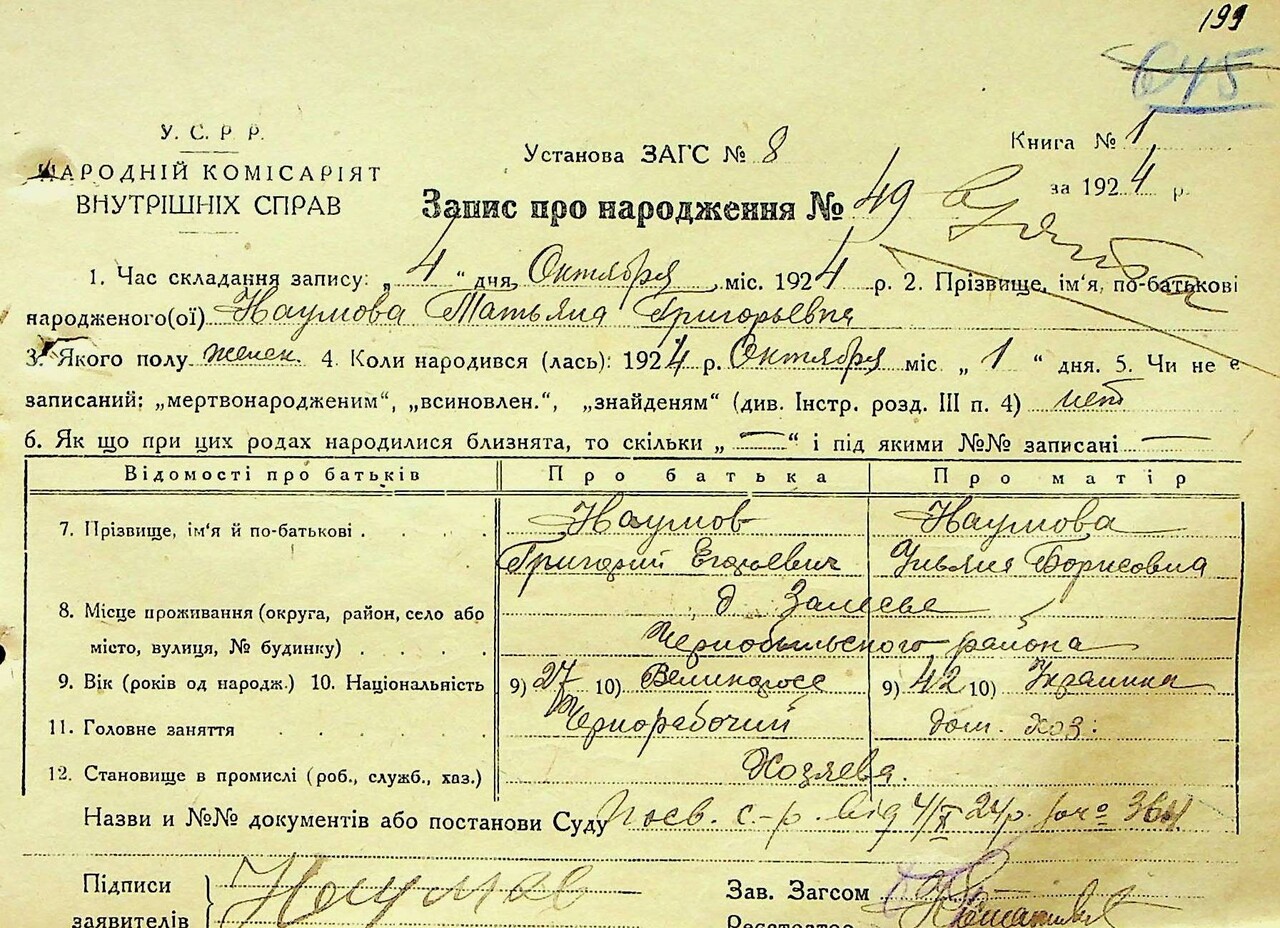 199
645
У. С. Р. Р.
НАРОДНІЙ КОМІСАРІЯТ
ВНУТРІШНІХ СПРАВ
Установа ЗАГС № 8
Книга № 1
за 1924 р.
Запис про народження № 49
1. Час складання запису: „4“ дня Октября міс. 1924 р. 2. Прізвище, ім'я, по-батькові
народженого(ої) Наумова Татьяна Григорьевна
3. Якого полу женск. 4. Коли народився (лась): 1924 р. Октября міс „1“ дня. 5. Чи не є
записаний: „мертвонародженим“, „всиновлен.“, „знайденям“ (див. Інстр. розд. III п. 4) нет
6. Як що при цих родах народилися близнята, то скільки „—“ і під якими №№ записані —
Відомості про батьків Про батька Про матір
7. Прізвище, ім'я й по-батькові Наумов Наумова
Григорий Егорьевич Ульяна Борисовна
8. Місце проживання (округа, район, село або д Залесье
місто, вулиця, № будинку) Чернобыльского района
9. Вік (років од народж.) 10. Національність 9) 27 10) Великоросс 9) 42 10) Украинка
11. Головне заняття Чернорабочий дом. хоз:
12. Становище в промислі (роб., служб., хаз.) Хозяева.
Назви и №№ документів або постанови Суду Посв. с.-р. від 4/X 24р. за № 364
Підписи
заявителів
Наумов
Зав. Загсом
Реєстратор